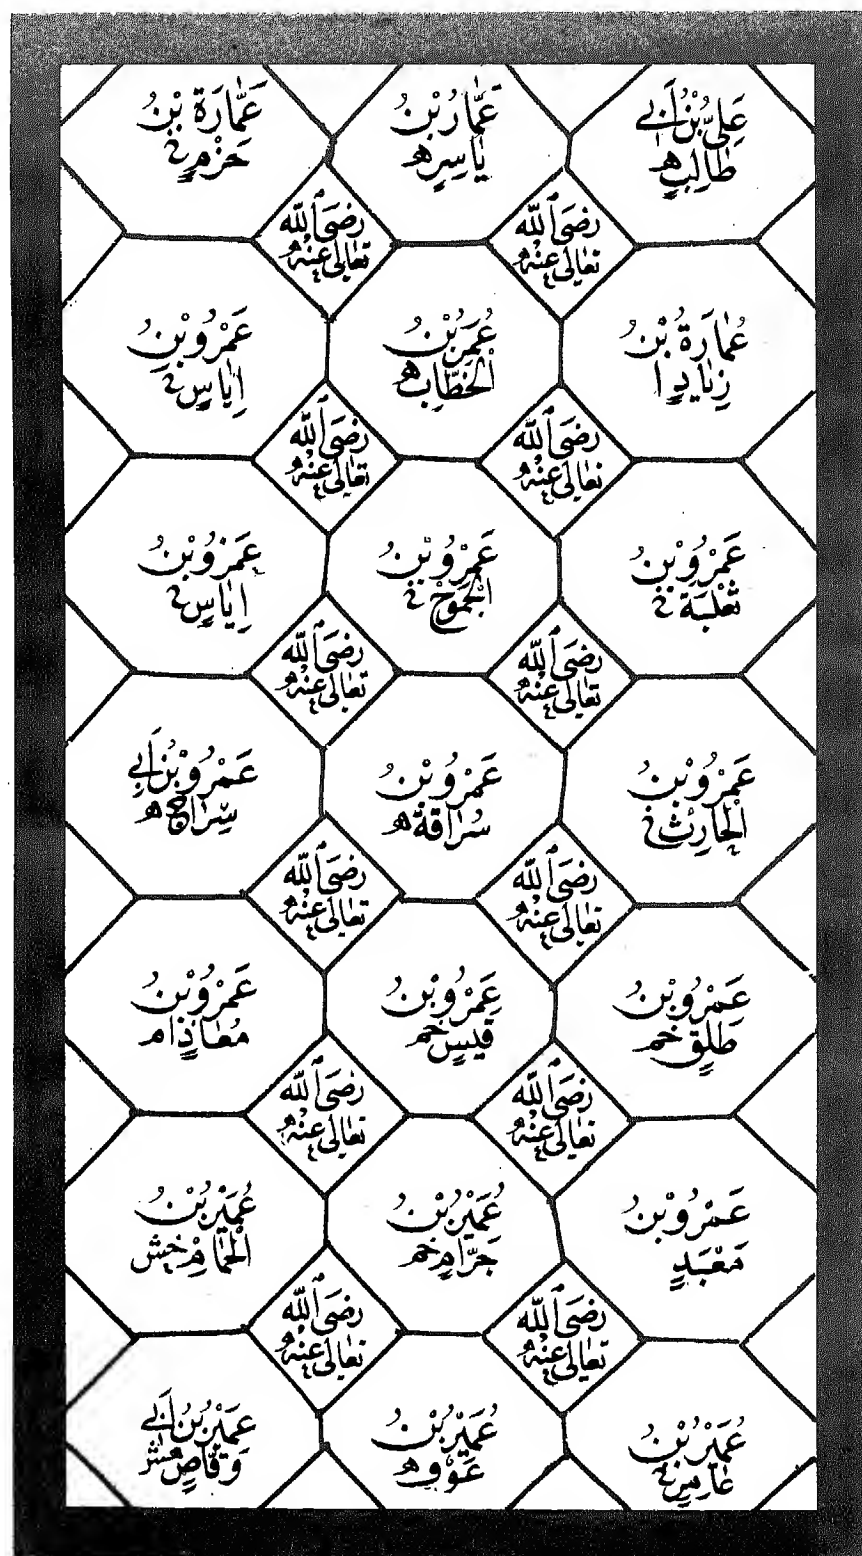 عَلِيُّ بْنُ أَبِي
طَالِبٍ ه
عَمَّارُ بْنُ
يَاسِرٍ ه
عَمَّارَةُ بْنُ
حَزْمٍ خ
رَضِیَ اللّٰه
تَعَالٰی عَنْهُ
رَضِیَ اللّٰه
تَعَالٰی عَنْهُ
عُمَارَةُ بْنُ
زِيَادٍ ا
عُمَرُ بْنُ
الْخَطَّابِ ه
عَمْرُو بْنُ
اِيَاسٍ خ
رَضِیَ اللّٰه
تَعَالٰی عَنْهُ
رَضِیَ اللّٰه
تَعَالٰی عَنْهُ
عَمْرُو بْنُ
ثَعْلَبَةَ خ
عَمْرُو بْنُ
الْجَمُوحِ خ
عَمْرُو بْنُ
اِيَاسٍ خ
رَضِیَ اللّٰه
تَعَالٰی عَنْهُ
رَضِیَ اللّٰه
تَعَالٰی عَنْهُ
عَمْرُو بْنُ
الْحَارِثِ خ
عَمْرُو بْنُ
سُرَاقَةَ ه
عَمْرُو بْنُ أَبِي
سِرَاجٍ ه
رَضِیَ اللّٰه
تَعَالٰی عَنْهُ
رَضِیَ اللّٰه
تَعَالٰی عَنْهُ
عَمْرُو بْنُ
طَلِقٍ خم
عَمْرُو بْنُ
قَيْسٍ خم
عَمْرُو بْنُ
مُعَاذٍ ام
رَضِیَ اللّٰه
تَعَالٰی عَنْهُ
رَضِیَ اللّٰه
تَعَالٰی عَنْهُ
عَمْرُو بْنُ
مَعْبَدٍ
عُمَيْرُ بْنُ
حَرَامٍ خم
عُمَيْرُ بْنُ
الْحُمَامِ خش
رَضِیَ اللّٰه
تَعَالٰی عَنْهُ
رَضِیَ اللّٰه
تَعَالٰی عَنْهُ
عُمَيْرُ بْنُ
عَامِرٍ خ
عُمَيْرُ بْنُ
عَوْفٍ ه
عُمَيْرُ بْنُ أَبِي
وَقَّاصٍ هش